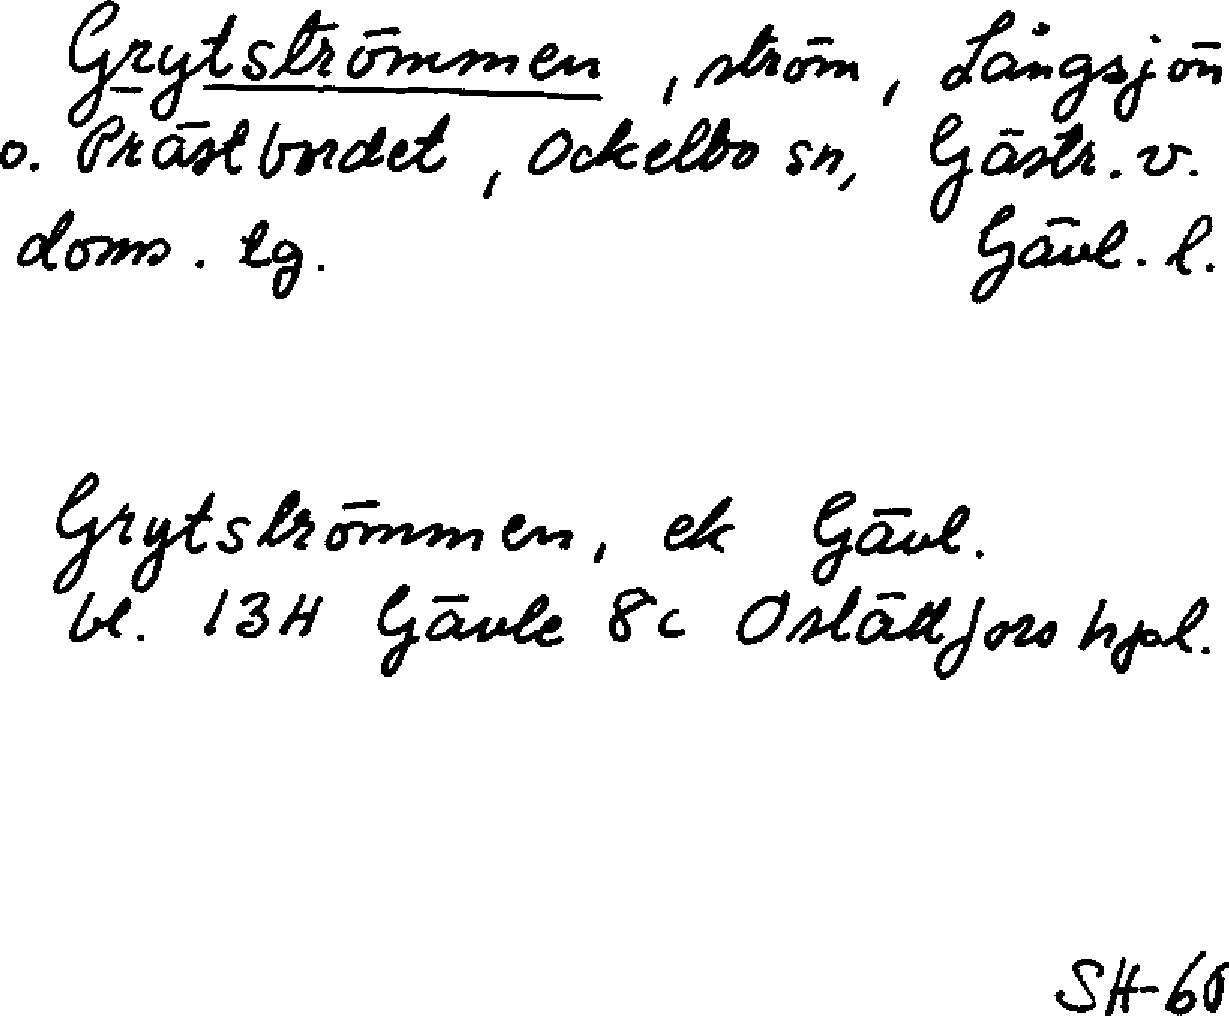 Grytströmmen, ström, Långsjön
o. Prästbordet, Ockelbo sn, Gästr. v.
doms. tg. Gävl. l.
Grytströmmen, ek Gävl.
bl. 13H Gävle 8c Oslättfors hpl.
SH-60